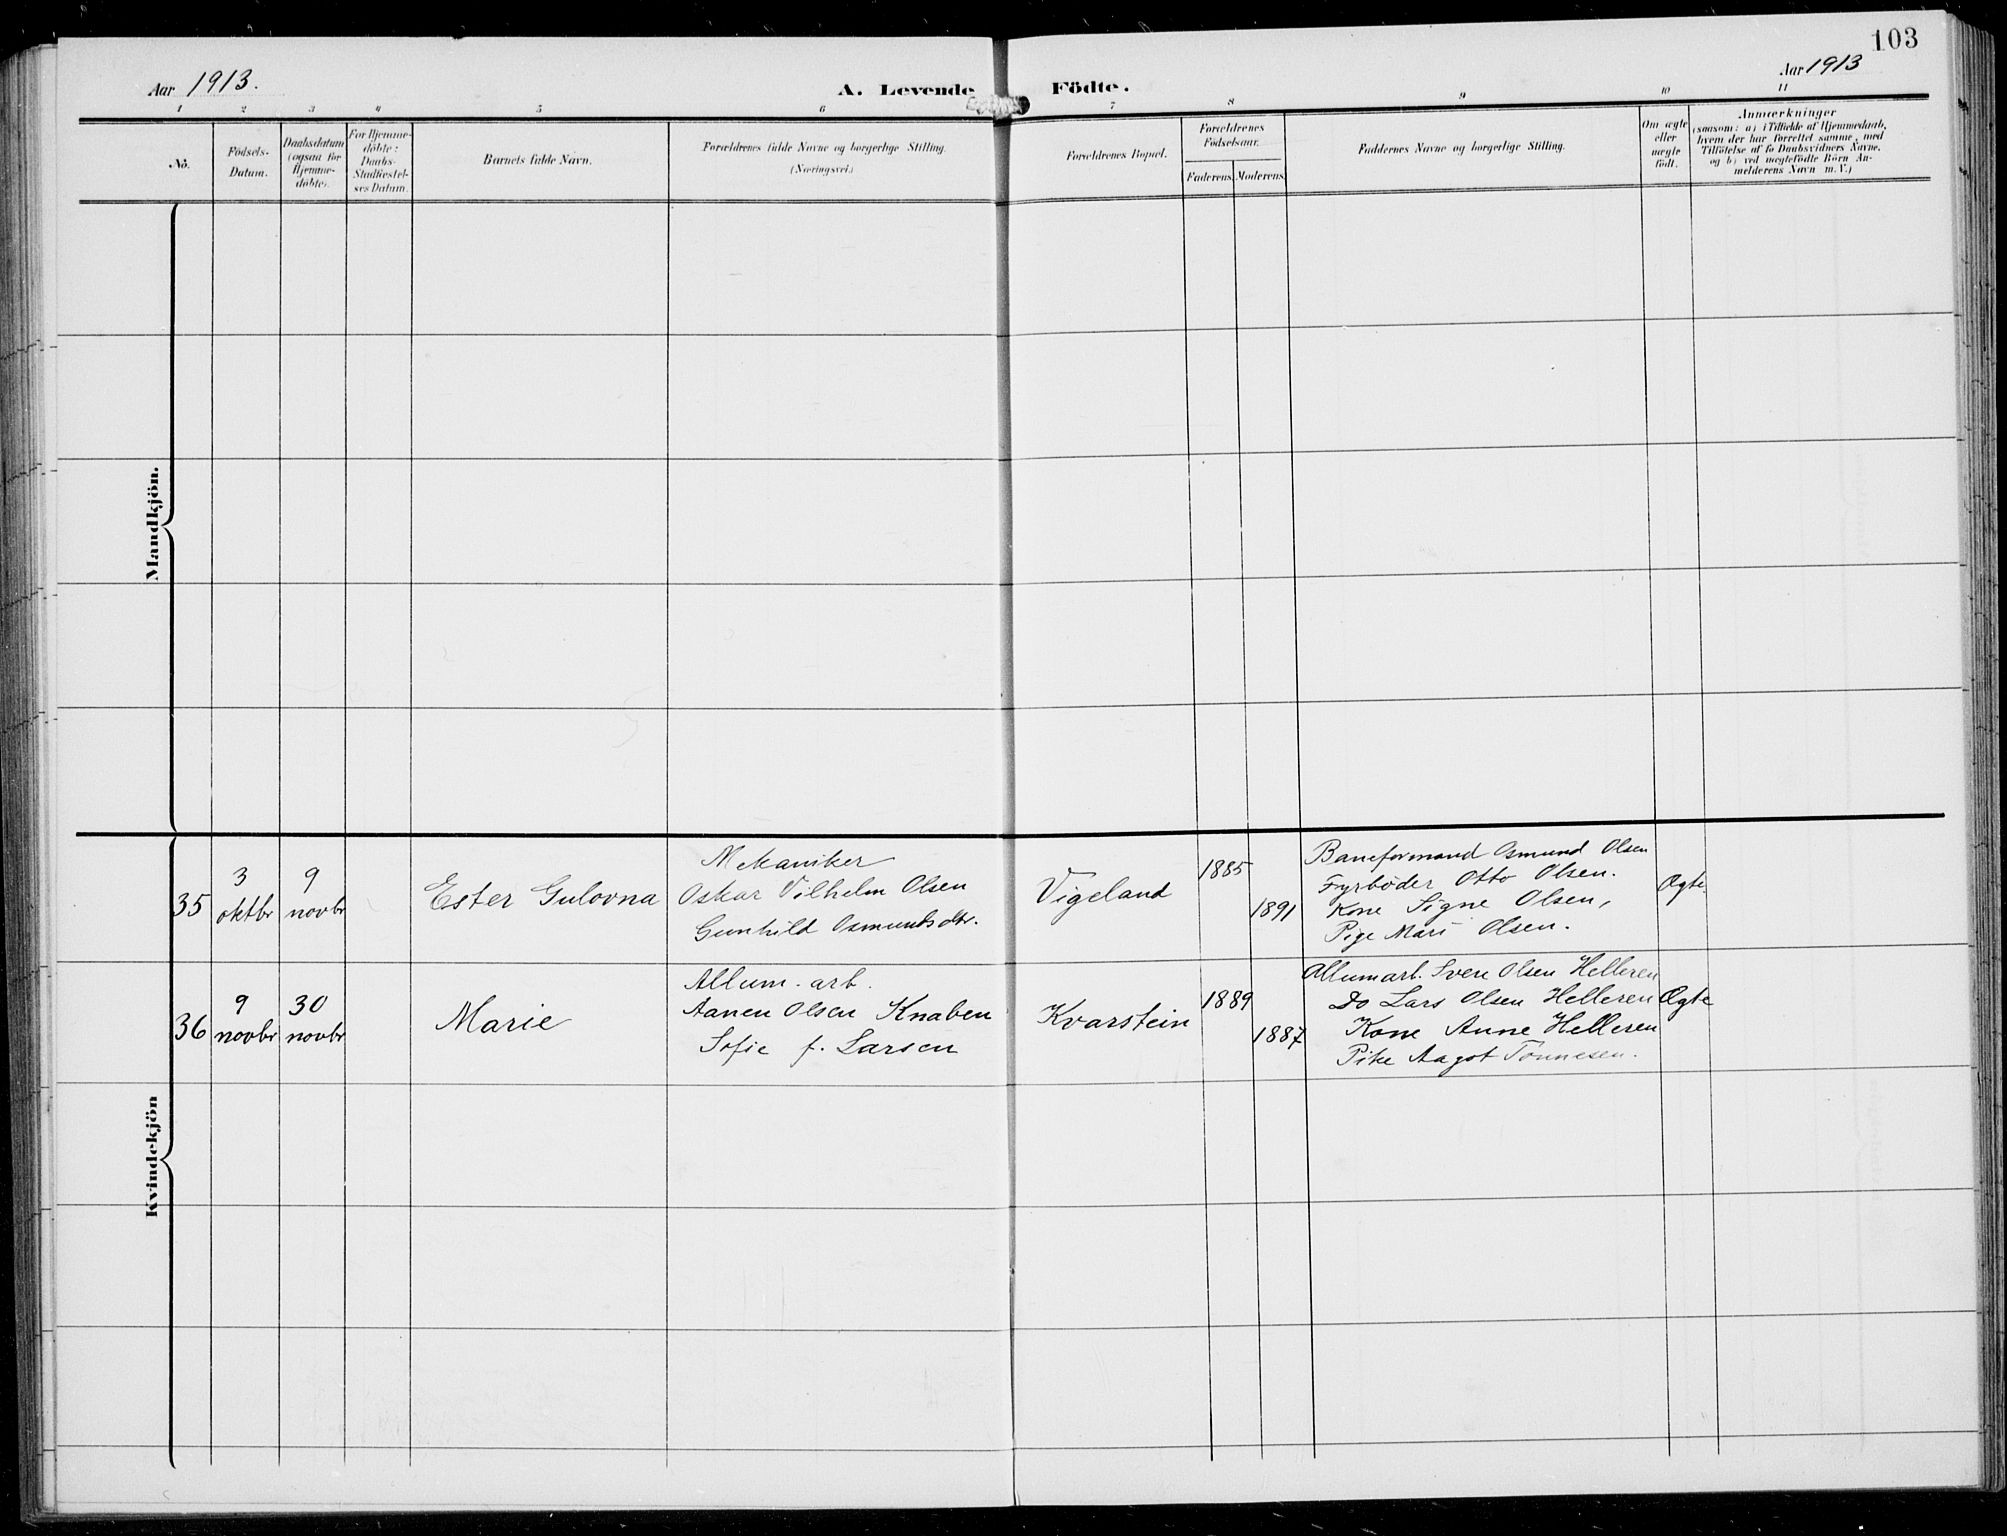 103
Aar 1913.
A. Levende Födte.
Aar 1913
1 2 3 4 5 6 7 8 9 10 11
No.
Födsels-
Datum.
Daabsdatum
(ogsaa for
Hjemme-
døbte).
For Hjemme-
døbte:
Daabs-
Stadfæstel-
ses Datum.
Barnets fulde Navn.
Forældrenes fulde Navne og borgerlige Stilling.
(Næringsvei.)
Forældrenes Bopæl.
Forældrenes
Födselsaar.
Faderens. Moderens.
Faddernes Navne og borgerlige Stilling.
Om ægte
eller
uægte
født.
Anmærkninger
(saasom: a) i Tilfælde af Hjemmedaab,
hvem der har forrettet samme, med
Tilføielse af to Daabsvidners Navne,
og b) ved uægtefødte Börn An-
melderens Navn m. V.)
Mandkjön.
Kvindekjön
35
3
oktbr
9
novbr
Ester Gulovna
Mekaniker
Oskar Vilhelm Olsen
Gunhild Osmundsdtr.
Vigeland
1885
1891
Baneformand Osmund Olsen
Fyrbøder Otto Olsen.
Kone Signe Olsen,
Pige Mari Olsen.
Ægte
36
9
novbr
30
novbr
Marie
Allum. arb.
Aanen Olsen Knaben
Sofie f. Larsen
Kvarstein
1889
1887
Allumarb. Svere Olsen Helleren
Do Lars Olsen Helleren
Kone Anne Helleren
Pike Aagot Tønnesen.
Ægte